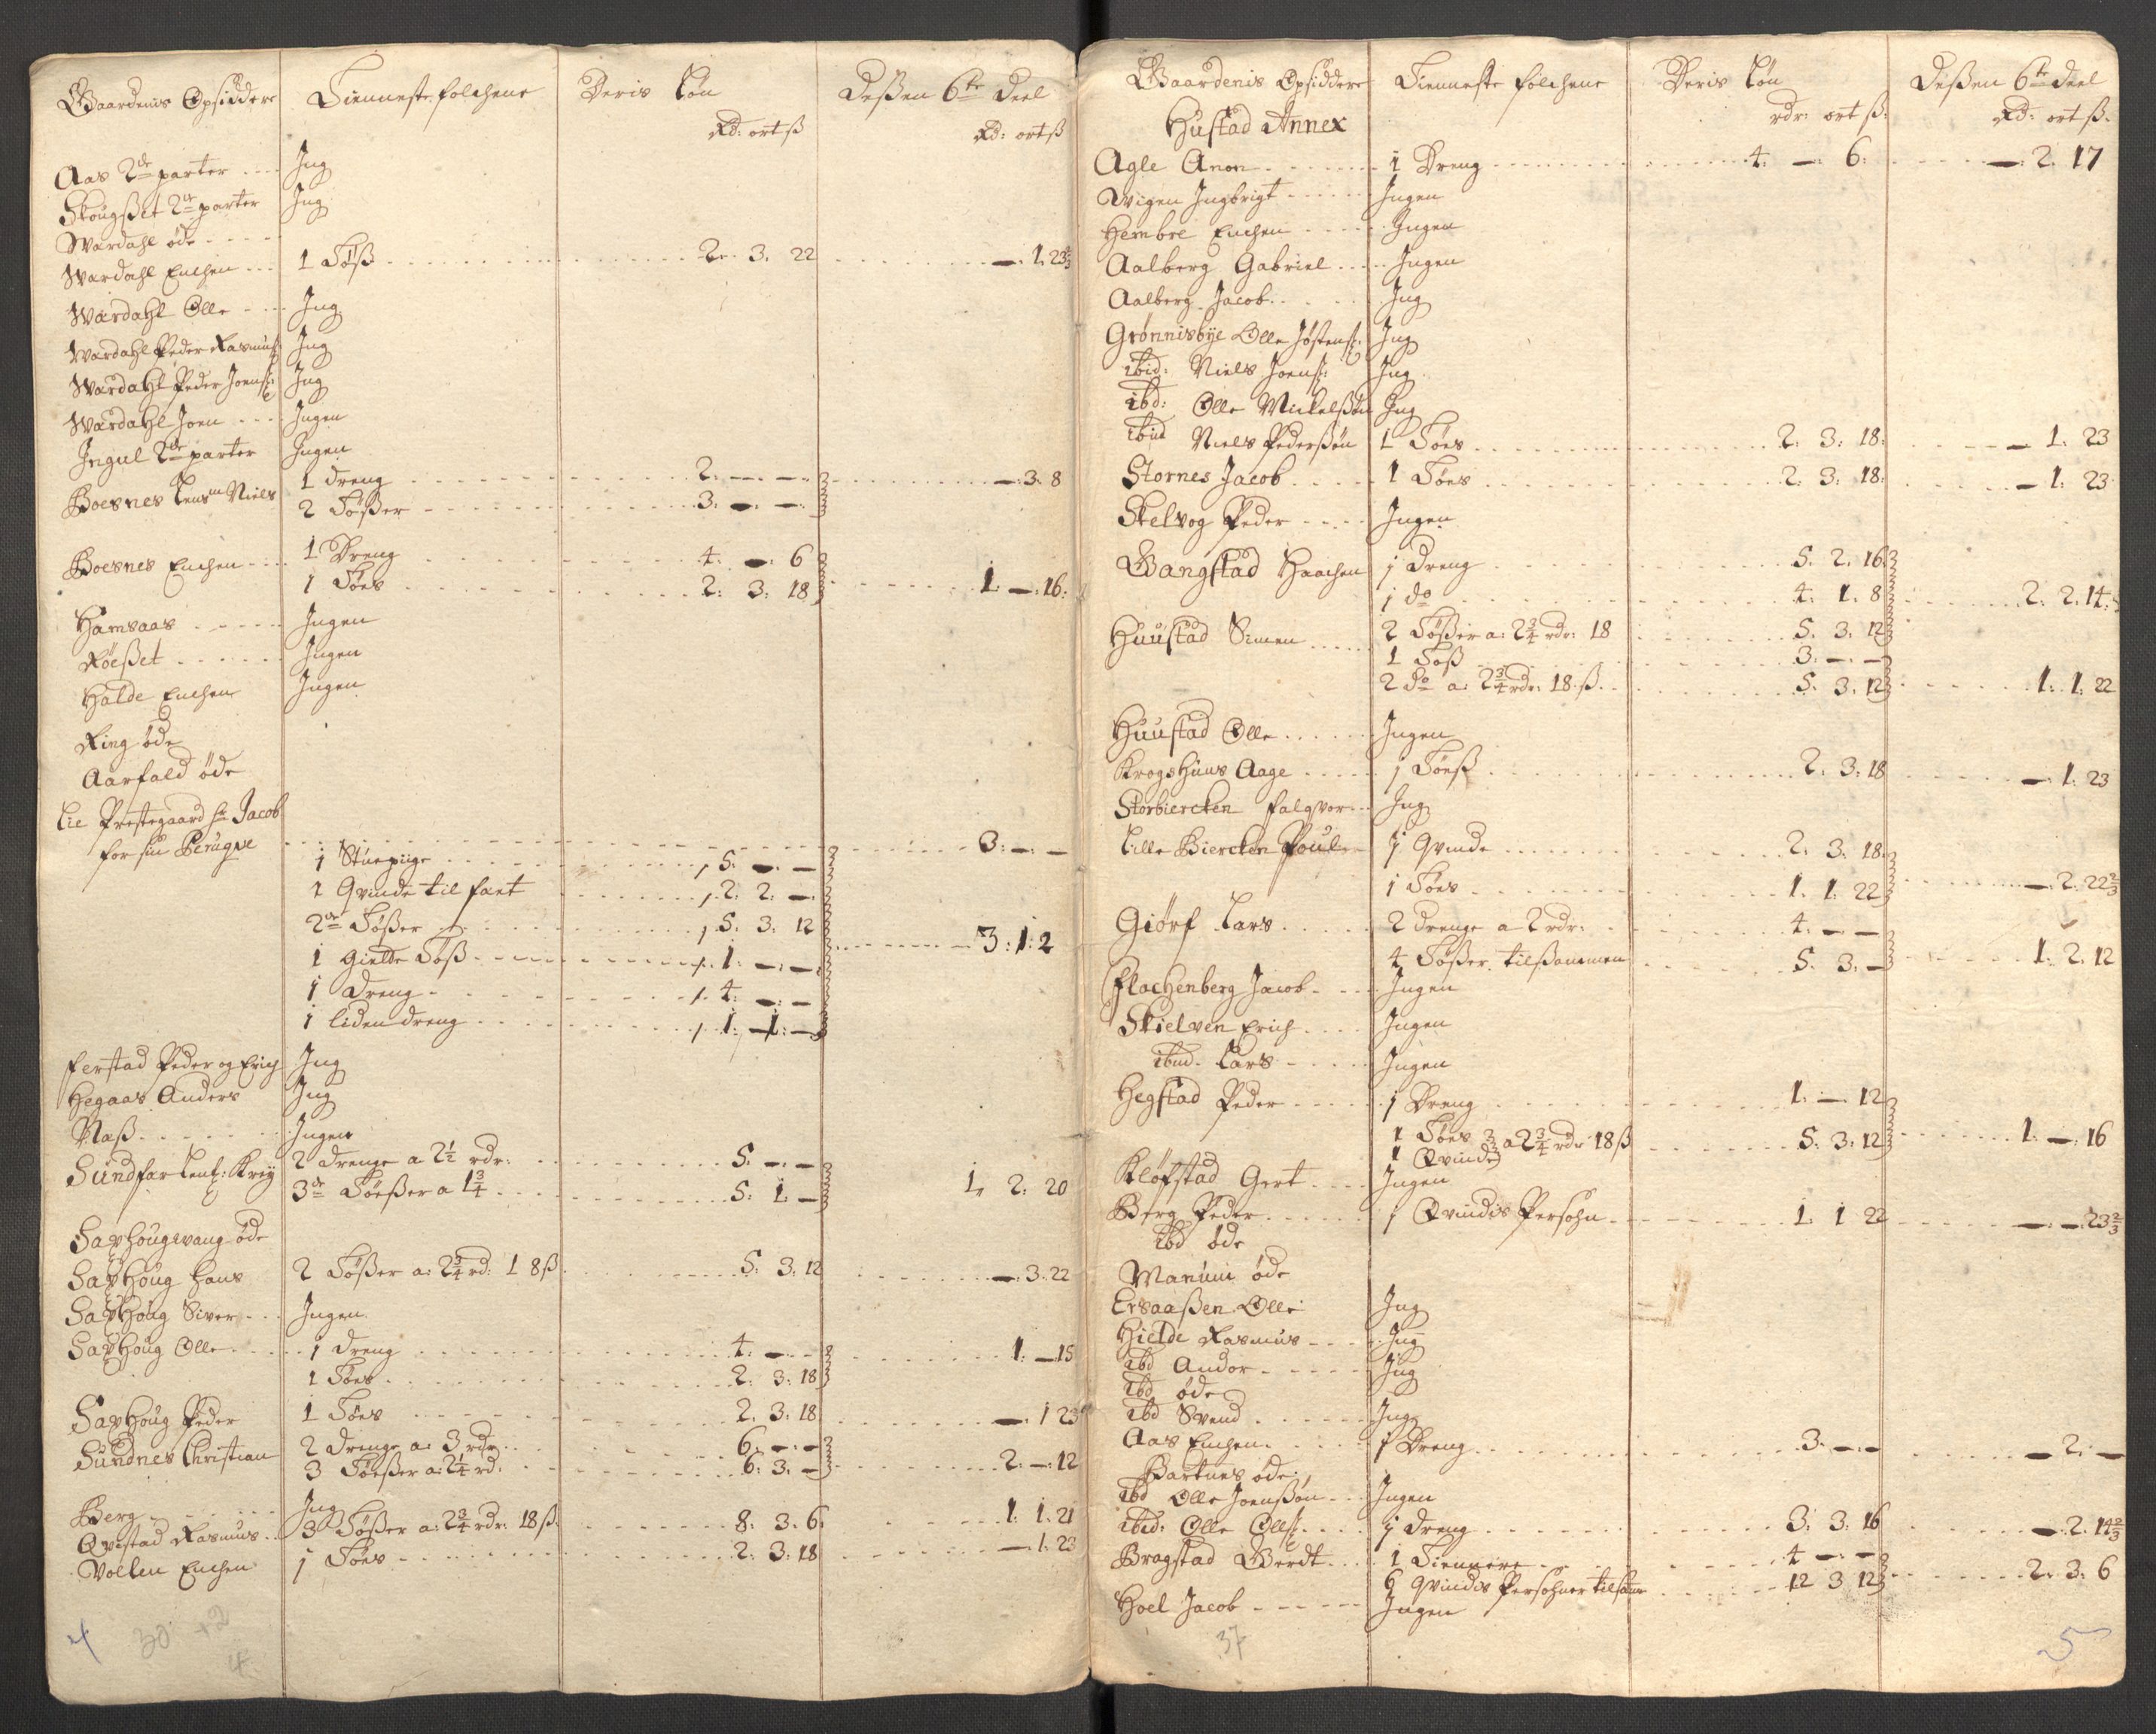 Gaardenis Opsiddere Tienneste folchene Deris Løn Deßen 6te Deel
Rd: ort ß Rd: ort ß
Aas 2de parter Ing
Skougset 2de parter Ing
Wardahl øde
Wardahl Enchen 1 Tøß 2. 3. 22 — 1. 23⅔
Wardahl Olle Ing
Wardahl Peder Rasmuß: Ing
Wardahl Peder Joenß: Ing
Wardahl Joen Ingen
Ingul 2de parter Ingen
Boesnes Lensm Niels 1 dreng 2. — — — 3. 8
2 Tøßer 3. — —
Boesnes Enchen 1 Dreng 4. — 6
1 Tøes 2. 3. 18 1. — 16.
Hamsaas Ingen
Røeßet Ingen
Halde Enchen Ingen
Ring øde
Aarfald øde
Lie Prestegaard hr Jacob
for sin Perugve 3. — —
1 Stuepiige 5. — —
1 Qvinde til faret 2. 2. —
2de Tøßer 5. 3. 12 3. 1. 2
1 Giette Tøß 1. — —
1 Dreng 4. — —
1 liden dreng 1. 1. —
Ferstad Peder og Erich Ing
Hegaas Anders Ing
Naß Ingen
Sundfar Lent: Krey 2 drenge a 2½ rdr: 5. — —
3de Tøeßer a 1¾ 5. 1. — 1. 2. 20
Saxhougvang øde
Saxhoug Hans 2 Tøßer a: 2¾ rd: 18 ß 5. 3. 12 — 3. 22
Saxhoug Siver Ingen
Saxhoug Olle 1 dreng 4. — — 1. — 15
1 Tøes 2. 3. 18
Saxhoug Peder 1 Tøes 2. 3. 18 — 1 23
Sundnes Christian 2 drenge a: 3 rdr 6. — —
3 Tøeßer a: 2¼ rd. 6. 3. — 2. — 12
Berg Ing
Qvistad Rasmus 3 Tøßer a: 2¾ rdr: 18 ß. 8. 3. 6 1. 1. 21
Vollen Enchen 1 Tøes 2. 3. 18 — 1. 23
4 30 +2
4
Gaardenis Opsiddere Tienneste folchene Deris Løn Deßen 6te deel
Hustad Annex rdr: ort ß: Rd: ort ß.
Agle Anon 1 Dreng 4. — 6. — 2. 17
Wigen Ingbrigt Ingen
Hembre Enchen Ingen
Aalberg Gabriel Ingen
Aalberg Jacob Ing
Grønnisbye Olle Jøstenß: Ing
ibid: Niels Joenß: Ing
ibd: Olle Mickelßøn Ing
ibid Niels Pederßøn 1 Tøes 2. 3. 18. — 1. 23
Stornes Jacob 1 Tøes 2. 3. 18. — 1. 23
Skelvog Peder Ingen
Gangstad Haachen 1 dreng 5. 2. 16
1 do 4. 1. 8 2. 2. 14
Huustad Simen 2 Tøßer a: 2¾ rdr: 18 5. 3. 12
1 Tøß 3. — —
2 do a: 2¾ rdr: 18 ß. 5. 3. 12 1. 1. 22
Huustad Olle Ingen
Krogshuus Aage 1 Tøeß 2. 3. 18 — 1. 23
Storbiercken Falqvor Ing
Lille Biercken Poul 1 Qvinde 2. 3. 18
1 Tøes 1. 1. 22 — 2. 22⅔
Giørf Lars 2 drenge a 2 rdr: 4. — —
4 Tøßer tilßammen 5. 3. — 1. 2. 12
Flachenberg Jacob Ingen
Skielven Erich Ingen
ibid. Lars Ingen
Hegstad Peder 1 Dreng 1. — 12
1 Tøes
1 Qvinde a 2¾ rdr 18 ß 5. 3. 12 1. — 16
Kløfstad Gert Ingen
Berg Peder 1 Qvindis Persohn 1 1 22 — — 23⅔
ibd øde
Manum øde
Ersaaßen Olle Ing
Hielde Rasmus Ing
ibd Andor Ing
ibd øde
ibd Svend Ing
Aas Enchen 1 Dreng 3. — — — 2. —
Bartnes øde
ibd Olle Joenßøn Ingen
ibid: Olle Ollß: 1 dreng 3. 3. 16 — 2. 14⅔
Bragstad Gerdt 1 Tiennere 4 — —
6 qvindis Persohner tilsam 12 3 12 2. 3. 6
Hoel Jacob Ingen
37 5